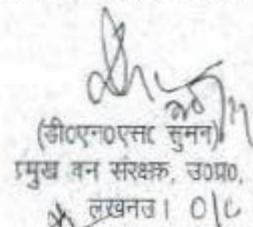 (डी०एन०एस० सुमन)
प्रमुख वन संरक्षक, उ०प्र०,
लखनउ। O/C